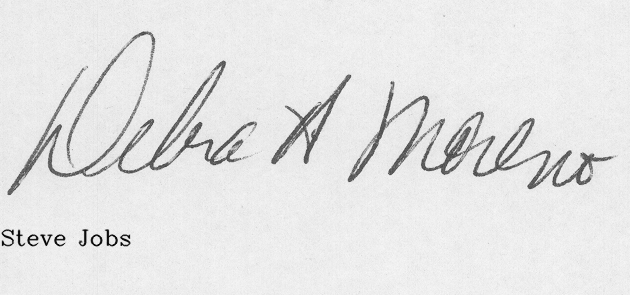 Debra A Moreno
Steve Jobs